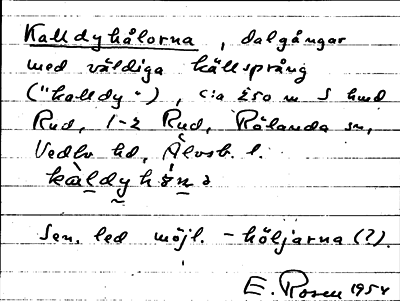 Kalldyhålorna, dalgångar
med väldiga källsprång
("kalldy"), c:a 250 m S hmd
Rud, 1-2 Rud, Rölanda sn,
Vedbo hd, Älvsb. l.
Sen. led möjl. -höljarna (?).
E. Rosen 1954